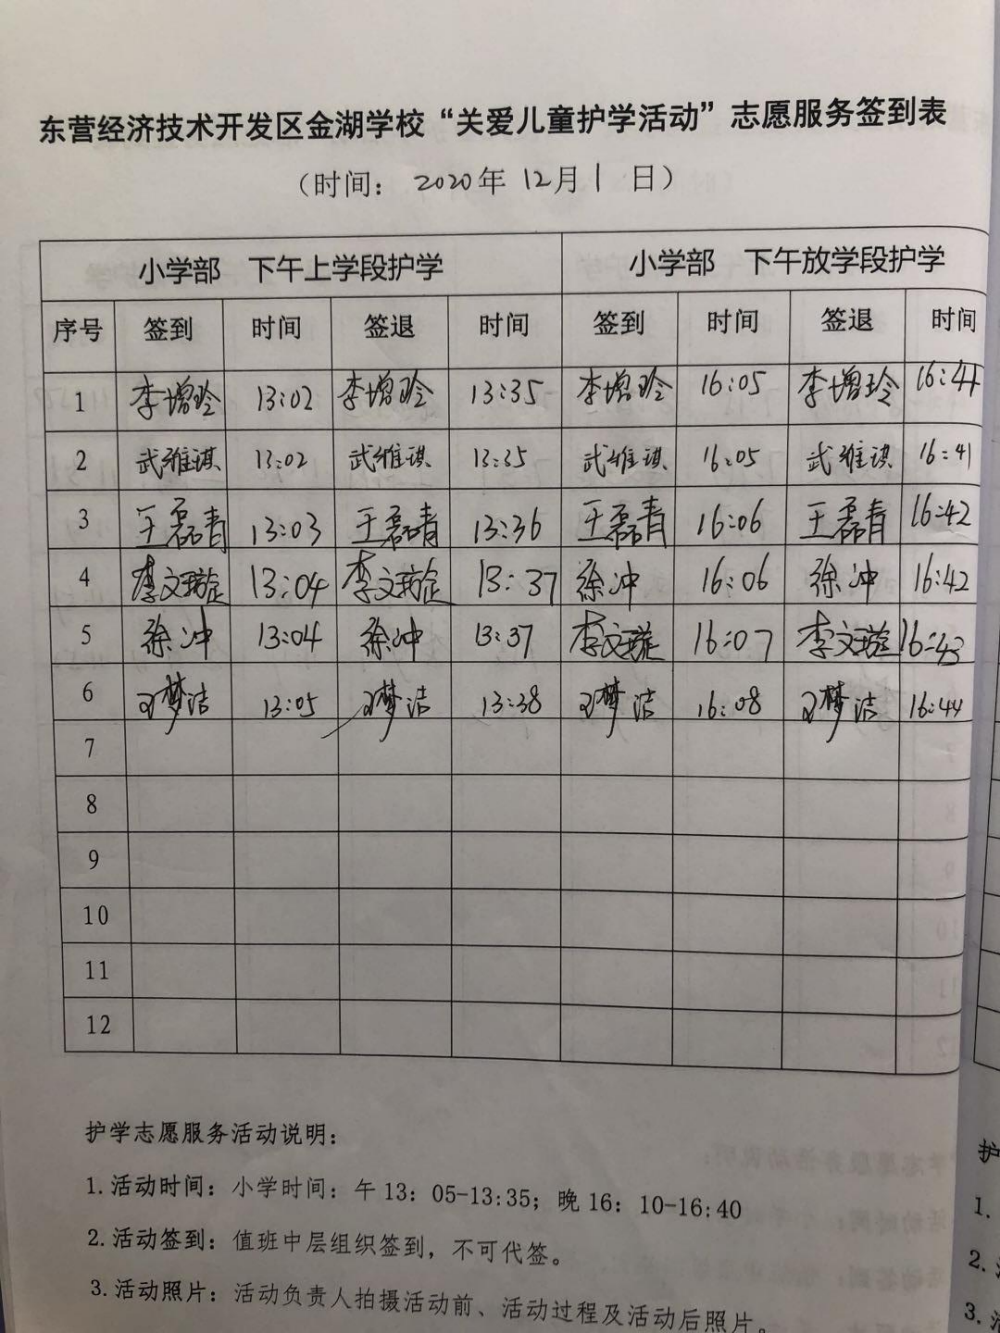 东营经济技术开发区金湖学校“关爱儿童护学活动”志愿服务签到表
（时间：2020年12月1日）
小学部 下午上学段护学 小学部 下午放学段护学
序号 签到 时间 签退 时间 签到 时间 签退 时间
1 李增玲 13:02 李增玲 13:35 李增玲 16:05 李增玲 16:41
2 武维琪 13:02 武维琪 13:35 武维琪 16:05 武维琪 16:41
3 王磊青 13:03 王磊青 13:36 王磊青 16:06 王磊青 16:42
4 李文璇 13:04 李文璇 13:37 徐冲 16:06 徐冲 16:42
5 徐冲 13:04 徐冲 13:37 李文璇 16:07 李文璇 16:43
6 梦洁 13:05 梦洁 13:38 梦洁 16:08 梦洁 16:44
7
8
9
10
11
12
护学志愿服务活动说明：
1.活动时间：小学时间：午13：05-13:35；晚16：10-16:40
2.活动签到：值班中层组织签到，不可代签。
3.活动照片：活动负责人拍摄活动前、活动过程及活动后照片。
护
1.
2.
3.